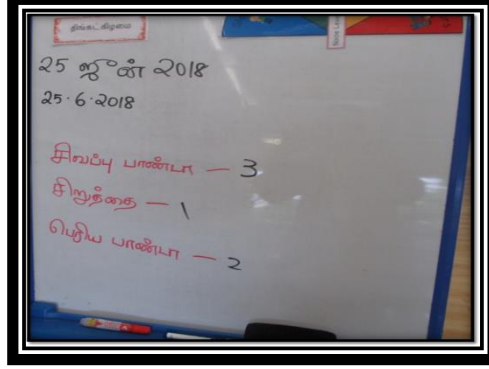 திங்கட்கிழமை
25 ஜூன் 2018
25.6.2018
சிவப்பு பாண்டா – 3
சிறுத்தை – 1
பெரிய பாண்டா – 2